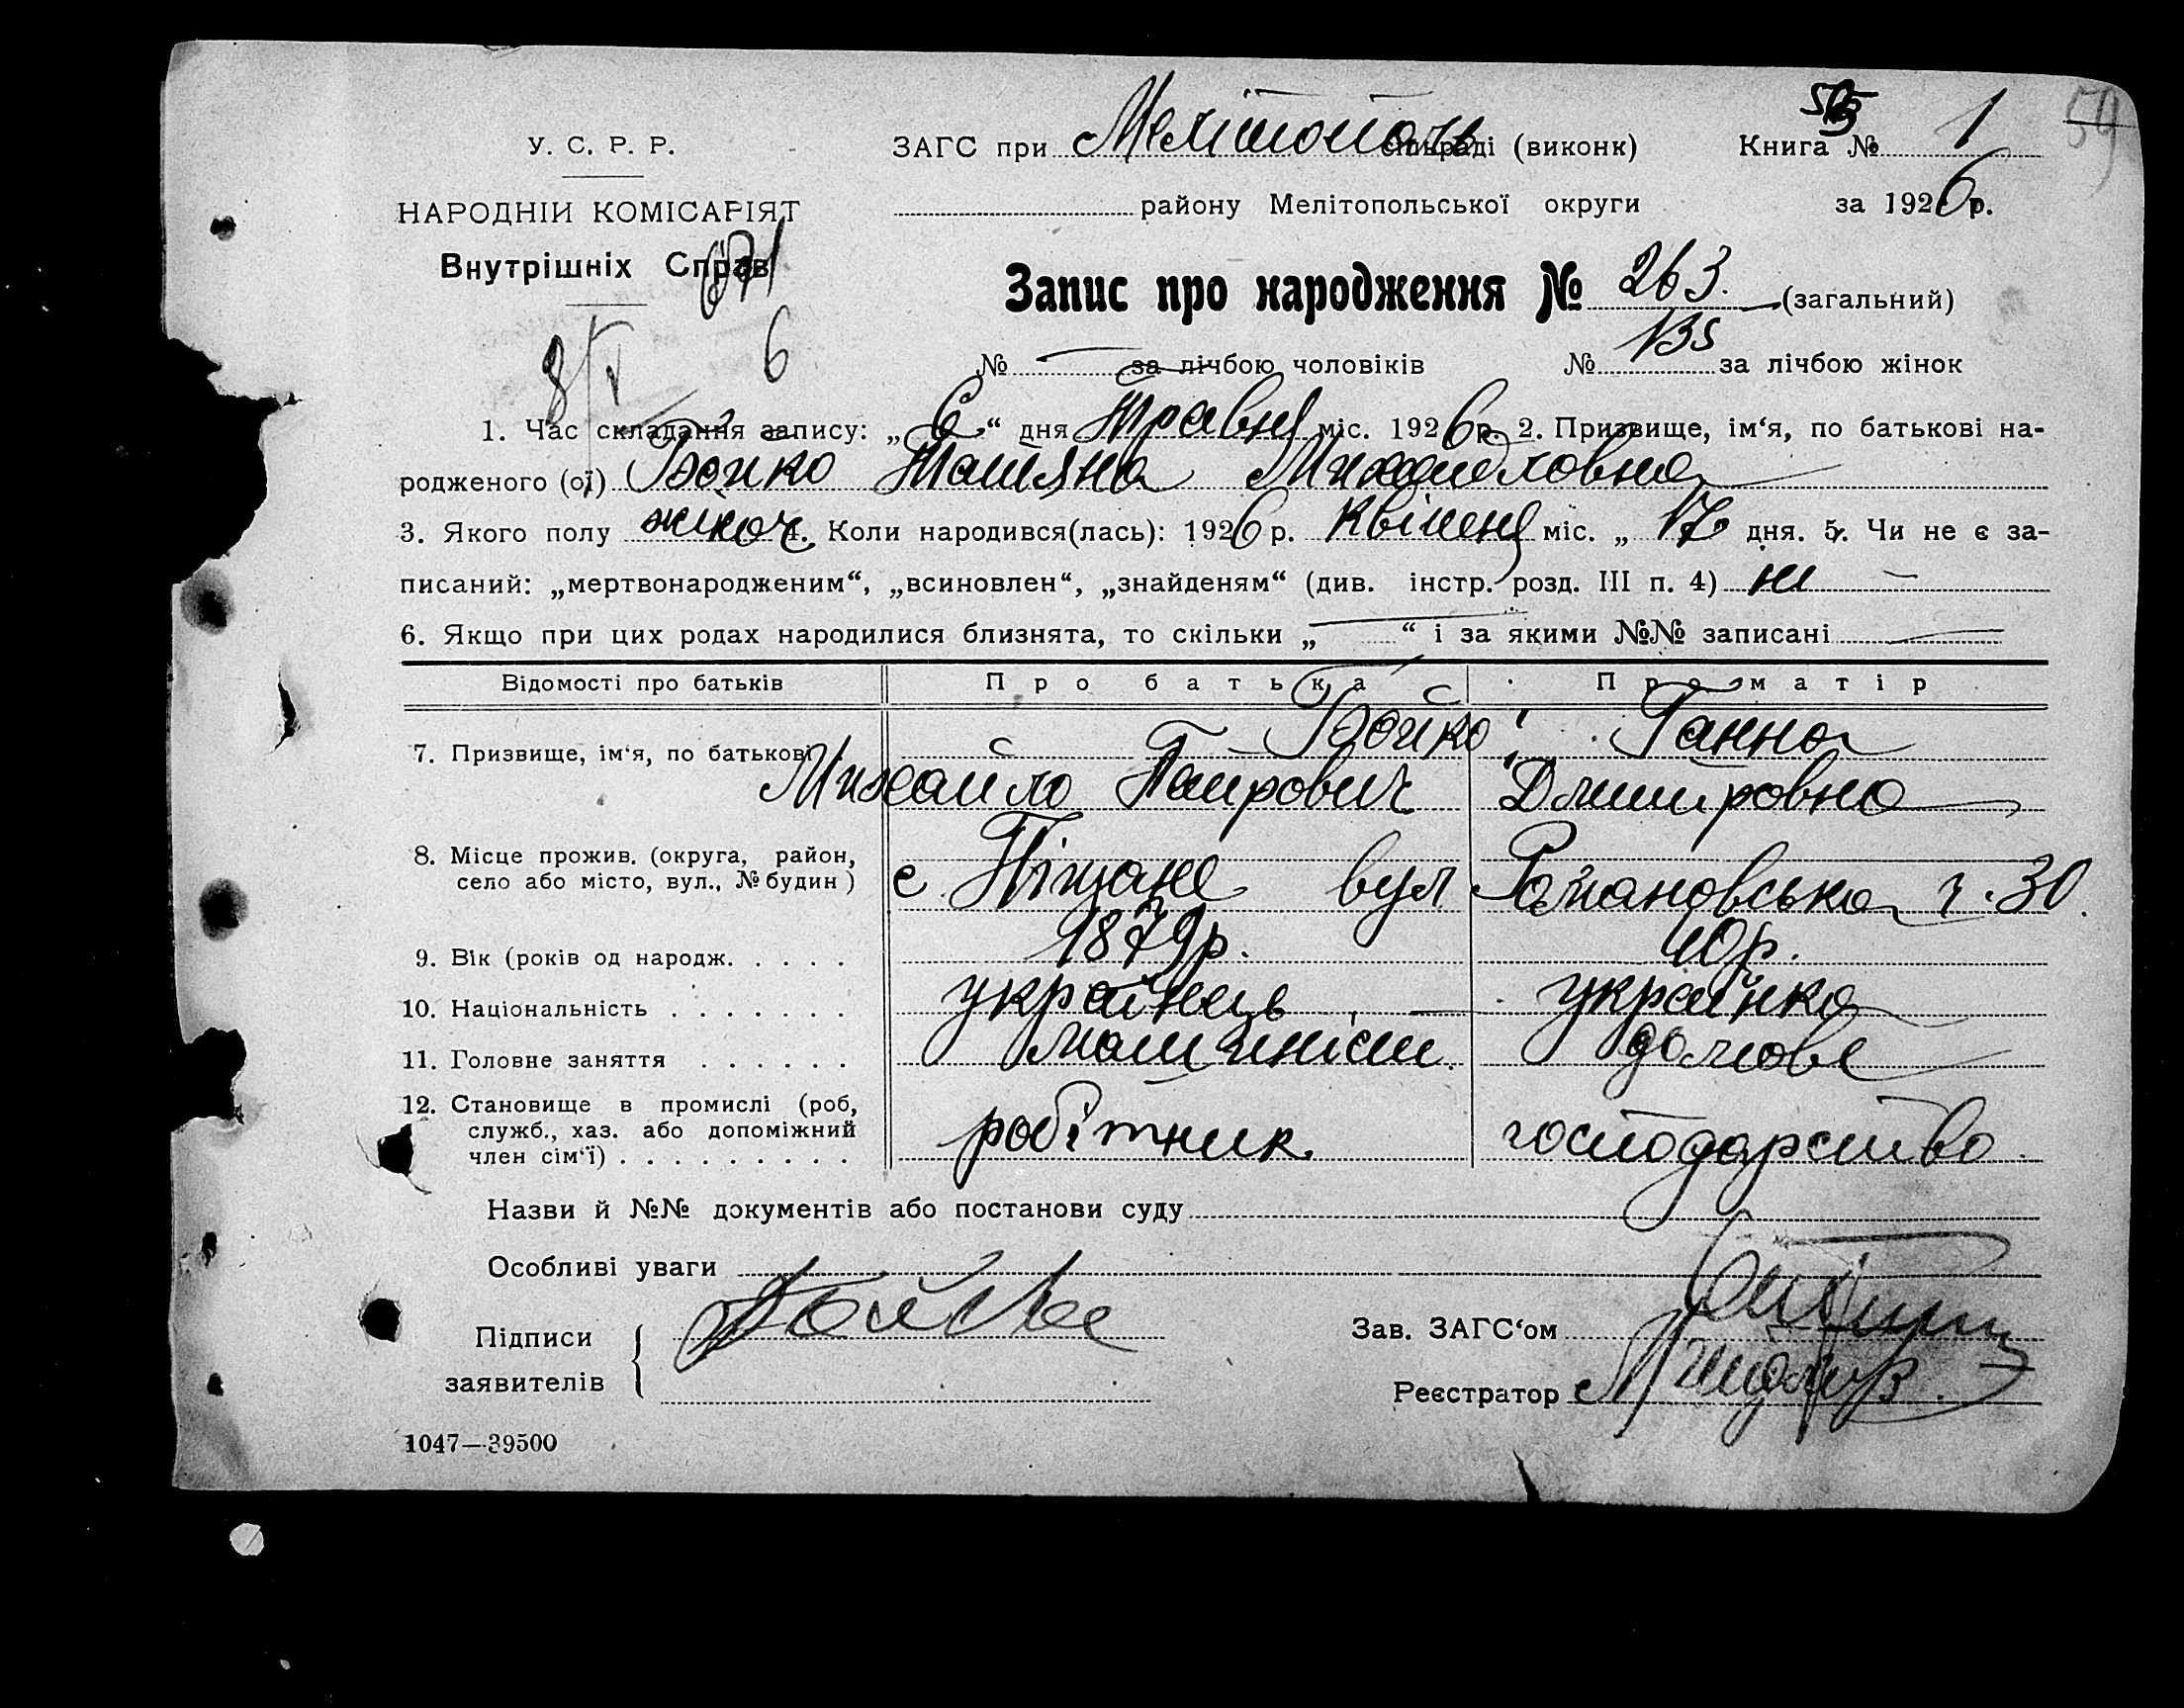 59
У. С. Р. Р.
ЗАГС при Мелітополь міськраді (виконк) Книга № 1
НАРОДНІЙ КОМІСАРІЯТ
району Мелітопольської округи за 1926 р.
Внутрішніх Справ
Запис про народження № 263. (загальний)
8/V 6
№ — за лічбою чоловіків № 135 за лічбою жінок
1. Час складання запису: „6“ дня Травня міс. 1926 р. 2. Призвище, ім‘я, по батькові на-
родженого (ої) Бойко Татьяна Михайловна
3. Якого полу жіноч. 4. Коли народився(лась): 1926 р. Квітеня міс. „ 17 дня. 5. Чи не є за-
писаний: „мертвонародженим“, „всиновлен“, „знайденям“ (див. інстр. розд. III п. 4) ні —
6. Якщо при цих родах народилися близнята, то скільки „ — “ і за якими №№ записані —
Відомості про батьків Про батька Про матір
7. Призвище, ім‘я, по батькові Бойко Ганна
Михайло Петрович Дмитровна
8. Місце прожив. (округа, район,
село або місто, вул., № будин) с Піщане вул Романовська ч. 30.
9. Вік (років од народж. . . . . 1879 р. 40 р.
10. Національність . . . . . . . українець українка
11. Головне заняття . . . . . . машиніст. домове
12. Становище в промислі (роб,
служб., хаз. або допоміжний
член сім‘ї) . . . . . . . . . робітник господарство
Назви й №№ документів або постанови суду
Особливі уваги
Підписи
заявителів
Бойко
Зав. ЗАГС‘ом
Реєстратор
1047—39500